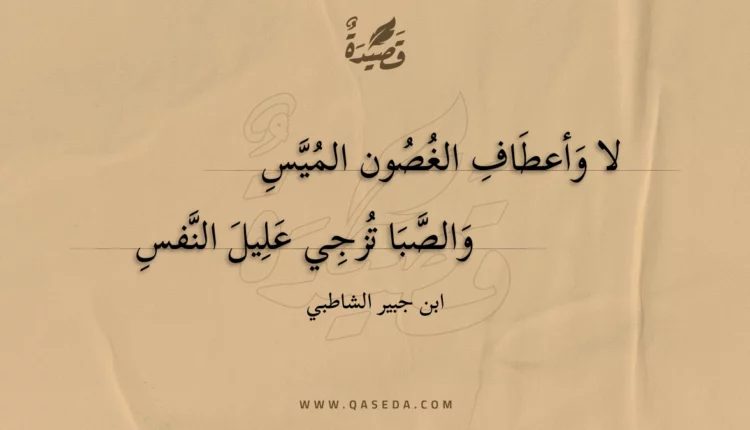 قَصِيدَةٌ
لا وَأعطَافِ الغُصُون المُيَّسِ
وَالصَّبَا تُزجِي عَلِيلَ النَّفسِ
ابن جبير الشاطبي
WWW.QASEDA.COM